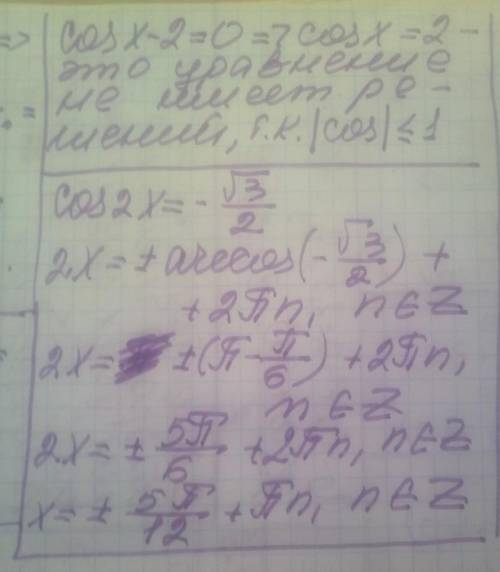 => cosx-2=0 => cosx=2 -
это уравнение
не имеет ре-
шений, т.к. |cos| ≤ 1
cos2x = - √3/2
2x = ± arccos(- √3/2) +
+ 2πn, n ∈ Z
2x = ± (π - π/6) + 2πn,
n ∈ Z
2x = ± 5π/6 + 2πn, n ∈ Z
x = ± 5π/12 + πn, n ∈ Z